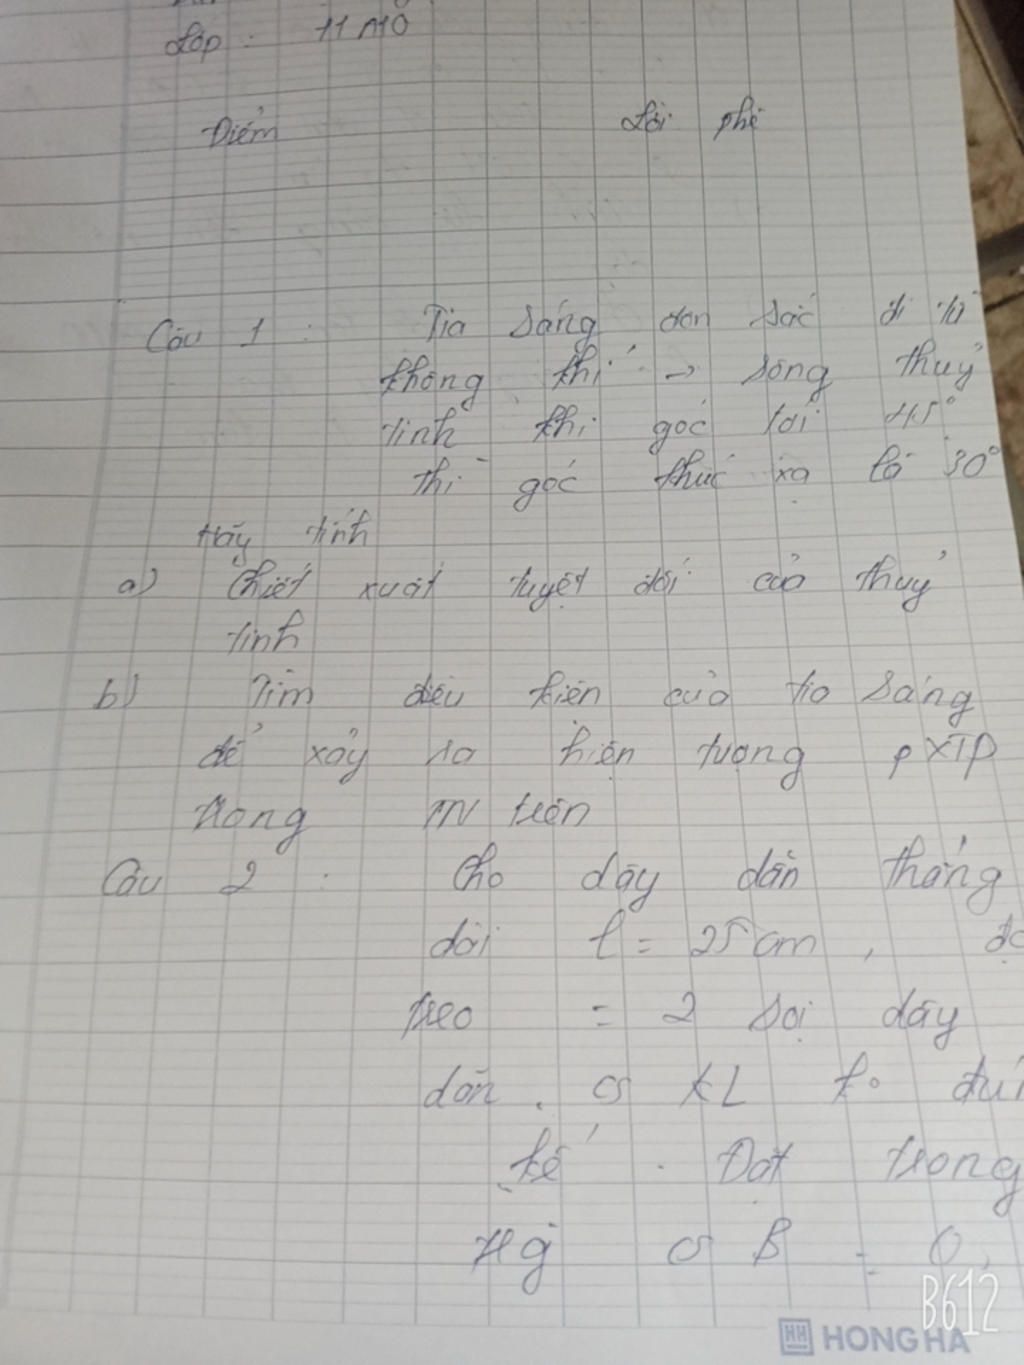 Lớp : 11 A10
Điểm Lời phê
Câu 1 : Tia sáng đơn sắc đi từ
không khí → sang thuỷ
tinh khi góc tới 45°
thì góc khúc xạ là 30°
Hãy tính
a) Chiết xuất tuyệt đối của thuỷ
tinh
b) Tìm điều kiện của tia sáng
để xảy ra hiện tượng pXTP
trong MV trên
Câu 2 : Cho dây dẫn thẳng
dài l = 25 cm ,
treo = 2 sợi dây
dẫn . có KL ko
kể . Đặt trong
có B = 0,
B612
HH HONG HA